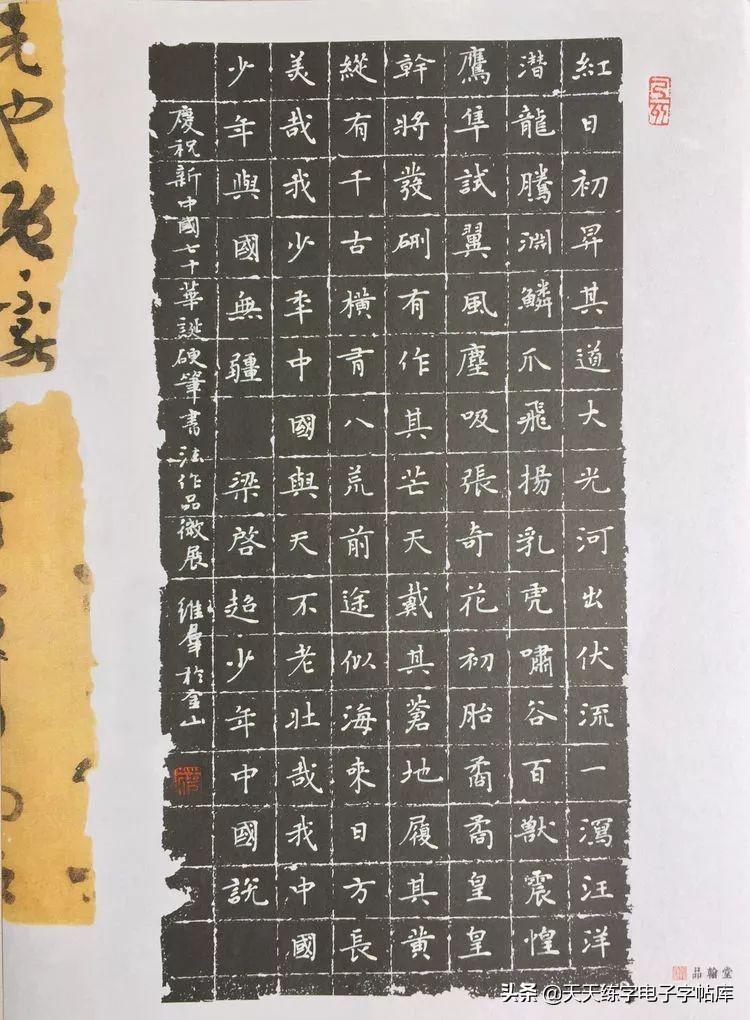 紅日初昇其道大光河出伏流一瀉汪洋
潛龍騰淵鱗爪飛揚乳虎嘯谷百獸震惶
鷹隼試翼風塵吸張奇花初胎矞矞皇皇
幹將發硎有作其芒天戴其蒼地履其黄
縱有千古橫有八荒前途似海來日方長
美哉我少年中國與天不老壯哉我中國
少年與國無疆 梁啓超少年中國説
慶祝新中國七十華誕硬筆書法作品徵展 維羣於金山
品翰堂
头条 @天天练字电子字帖库